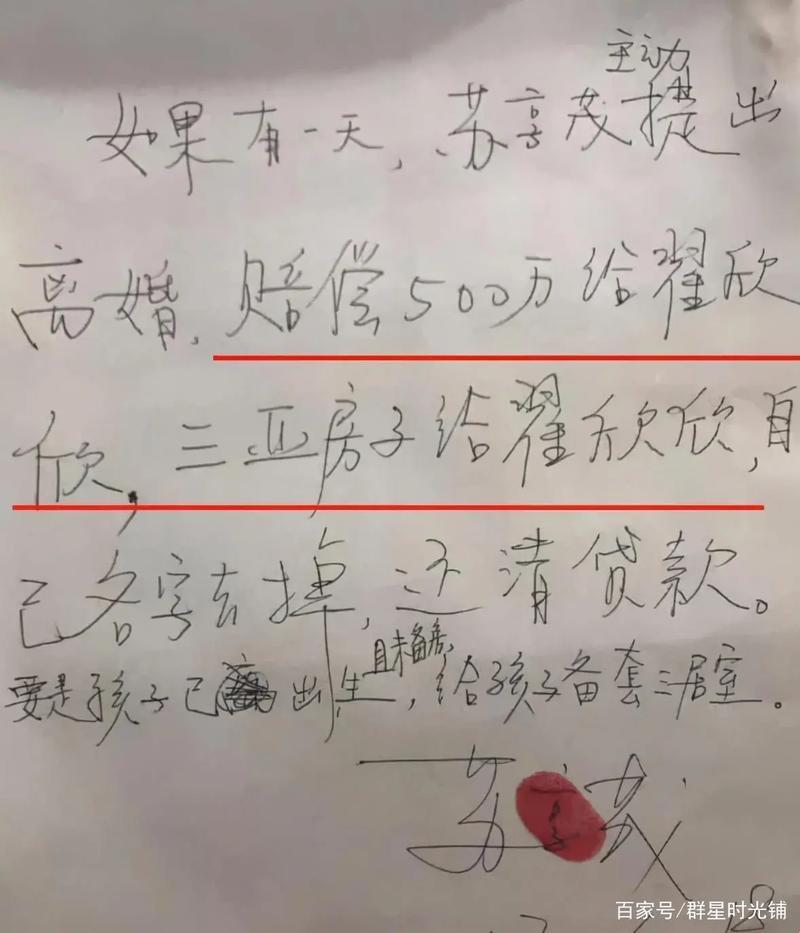 主动
如果有一天，苏享茂提出
离婚，赔偿500万给翟欣
欣，三亚房子给翟欣欣，自
己名字去掉，还清贷款。
且未备房，
要是孩子已出生，给孩子备套三居室。
苏享茂
百家号/群星时光铺